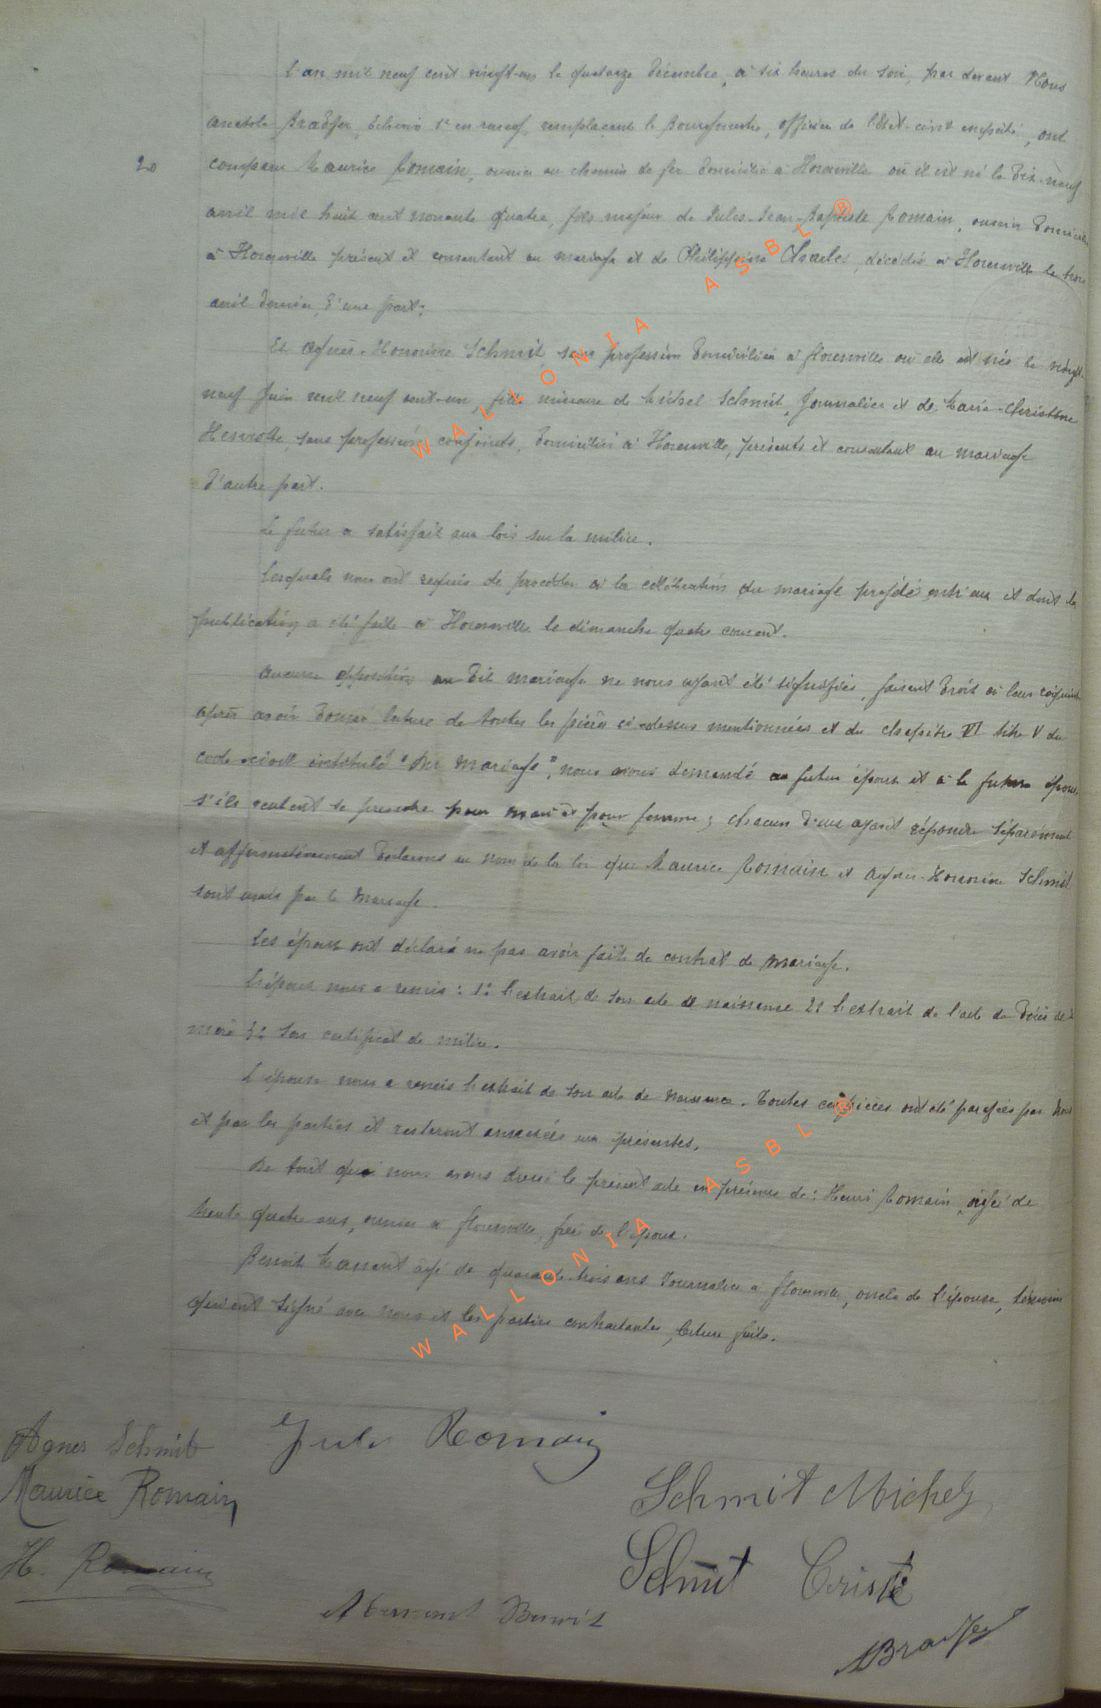 L'an mil neuf cent vingt-un le quatorze Décembre, à six heures du soir, par devant Nous
Anatole Bradfer, Echevin 1er en rang, remplaçant le Bourgmestre, officier de l'Etat-civil empêché, ont
20
comparu Maurice Romain, ouvrier au chemin de fer domicilié à Florenville où il est né le dix-neuf
avril mil huit cent nonante quatre, fils majeur de Jules-Jean-Baptiste Romain, ouvrier domicilié
à Florenville présent et consentant au mariage et de Philippine Charles, décédée à Florenville le trois
avril dernier, d'une part;
Et Agnès-Honorine Schmit sans profession domiciliée à Florenville où elle est née le vingt-
neuf Juin mil neuf cent-un, fille mineure de Michel Schmit, Journalier et de Marie-Christine
sans profession, conjoints, domiciliés à Florenville, présents et consentant au mariage
d'autre part.
Le futur a satisfait aux lois sur la milice.
Lesquels nous ont requis de procéder à la célébration du mariage projeté entr'eux et dont la
publication a été faite à Florenville le dimanche quatre courant.
Aucune opposition au dit mariage ne nous ayant été signifiée, faisant droit à leur réquisition
après avoir donné lecture de toutes les pièces ci-dessus mentionnées et du chapitre VI titre V du
code civil intitulé "Du Mariage", nous avons demandé au futur époux et à la future épouse
s'ils veulent se prendre pour mari et pour femme; chacun d'eux ayant répondu séparément
et affirmativement déclarons au nom de la loi que Maurice Romain et Agnès-Honorine Schmit
sont unis par le Mariage.
Les époux ont déclaré ne pas avoir fait de contrat de mariage.
L'époux nous a remis: 1° l'extrait de son acte de naissance 2° l'extrait de l'acte de décès de sa
mère 3° son certificat de milice.
L'épouse nous a remis l'extrait de son acte de naissance. Toutes ces pièces ont été parafées par Nous
et par les parties et resteront annexées aux présentes.
De tout quoi nous avons dressé le présent acte en présence de: Henri Romain, âgé de
trente quatre ans, ouvrier à Florenville, frère de l'époux.
Benoit Manant âgé de quarante-trois ans Journalier à Florenville, oncle de l'épouse, témoins
qui ont signé avec nous et les parties contractantes, lecture faite.
Agnes Schmit
Jules Romain
Maurice Romain
Schmit Michel
H. Romain
Schmit Criste
Benoit
ABradfer
WALLONIA ASBL ®
WALLONIA ASBL ®